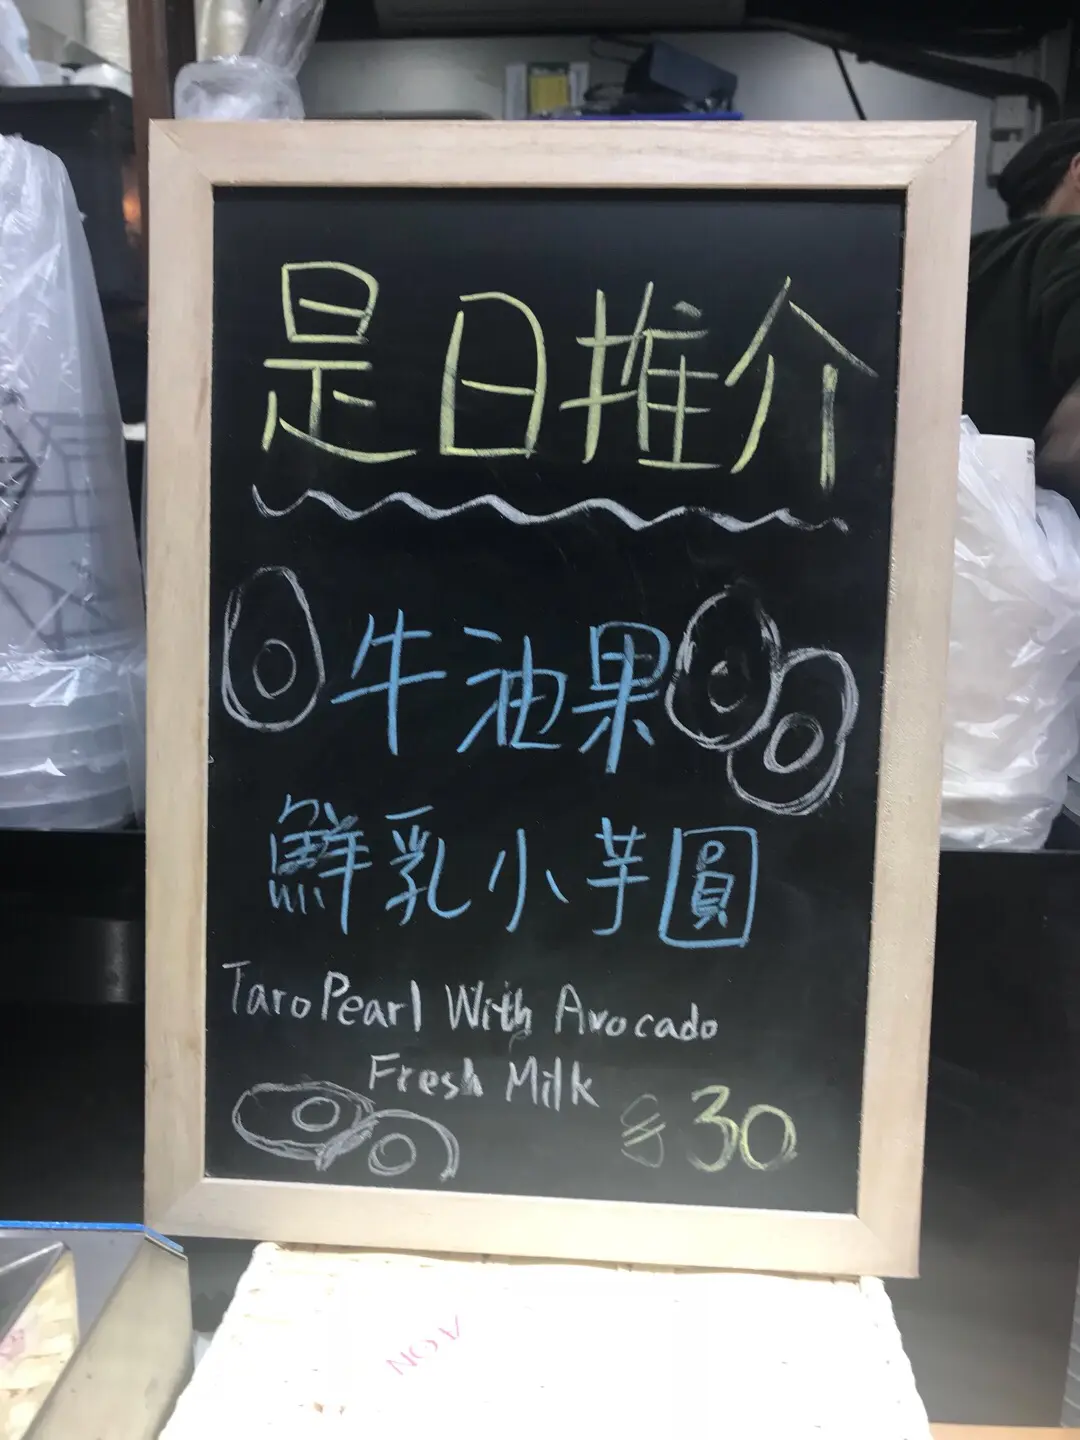 是日推介
牛油果
鮮乳小芋圓
Taro Pearl With Avocado
Fresh Milk
$30
NOV